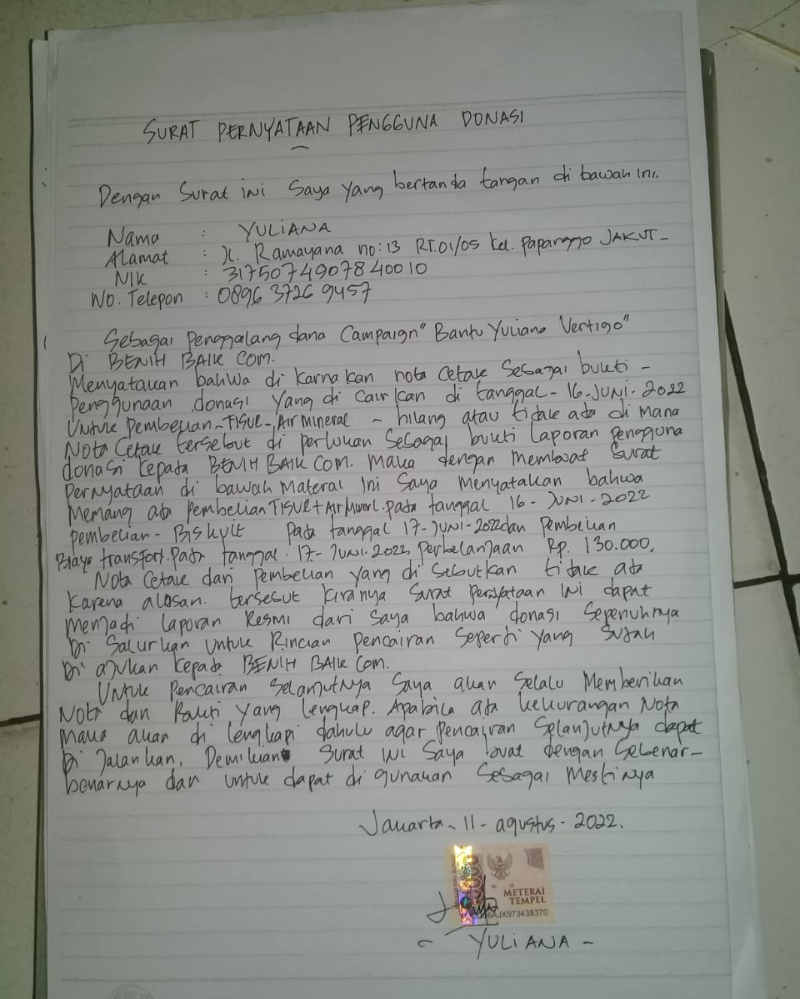 SURAT PERNYATAAN PENGGUNA DONASI
Dengan Surat ini Saya Yang bertanda tangan di bawah ini.
Nama : YULIANA
Alamat : Jl. Ramayana no:13 RT.01/05 kel. Papanggo JAKUT-
NIK : 3175074907840010
No. Telepon : 0896 3726 9457
Sebagai Penggalang dana Campaign "Bantu Yuliana Vertigo"
Di BENIH BAIK COM.
Menyatakan bahwa di karnakan nota Cetak Sebagai bukti -
Penggunaan donasi Yang di Cairkan di tanggal - 16-JUNI-2022
Untuk Pembelian - TISUE -, Air Mineral - hilang atau tidak ada di mana
Nota Cetak tersebut di perlukan Sebagai bukti laporan pengguna
donasi kepada BENIH BAIK COM. Maka dengan membuat Surat
Pernyataan di bawah Materai ini Saya Menyatakan bahwa
Memang ada Pembelian TISUE + Air Mineral. pada tanggal 16 - JUNI - 2022
pembelian - Biskuit Pada tanggal 17-JUNI-2022 dan Pembelian
Biaya transfort. Pada tanggal. 17-JUNI-2022 Perbelanjaan Rp. 130.000,
Nota Cetak dari Pembelian Yang di Sebutkan tidak ada
Karena alasan. tersebut kiranya Surat Peryataan ini dapat
Menjadi laporan Resmi dari Saya bahwa donasi Sepenuhnya
Di Salurkan Untuk Rincian Pencairan Seperti Yang Sudah
Di ajukan kepada BENIH BAIK Com.
Untuk Pencairan Selanjutnya Saya akan Selalu Memberikan
Nota dan Bukti Yang lengkap. Apabila ada kekurangan Nota
Maka akan di lengkapi dahulu agar Pencairan Selanjutnya dapat
Di Jalankan, Demikian Surat ini Saya buat dengan Sebenar-
benarnya dan Untuk dapat di gunakan Sebagai Mestinya
Jakarta - 11 - agustus - 2022.
METERAI
TEMPEL
AJX973438370
- YULIANA -